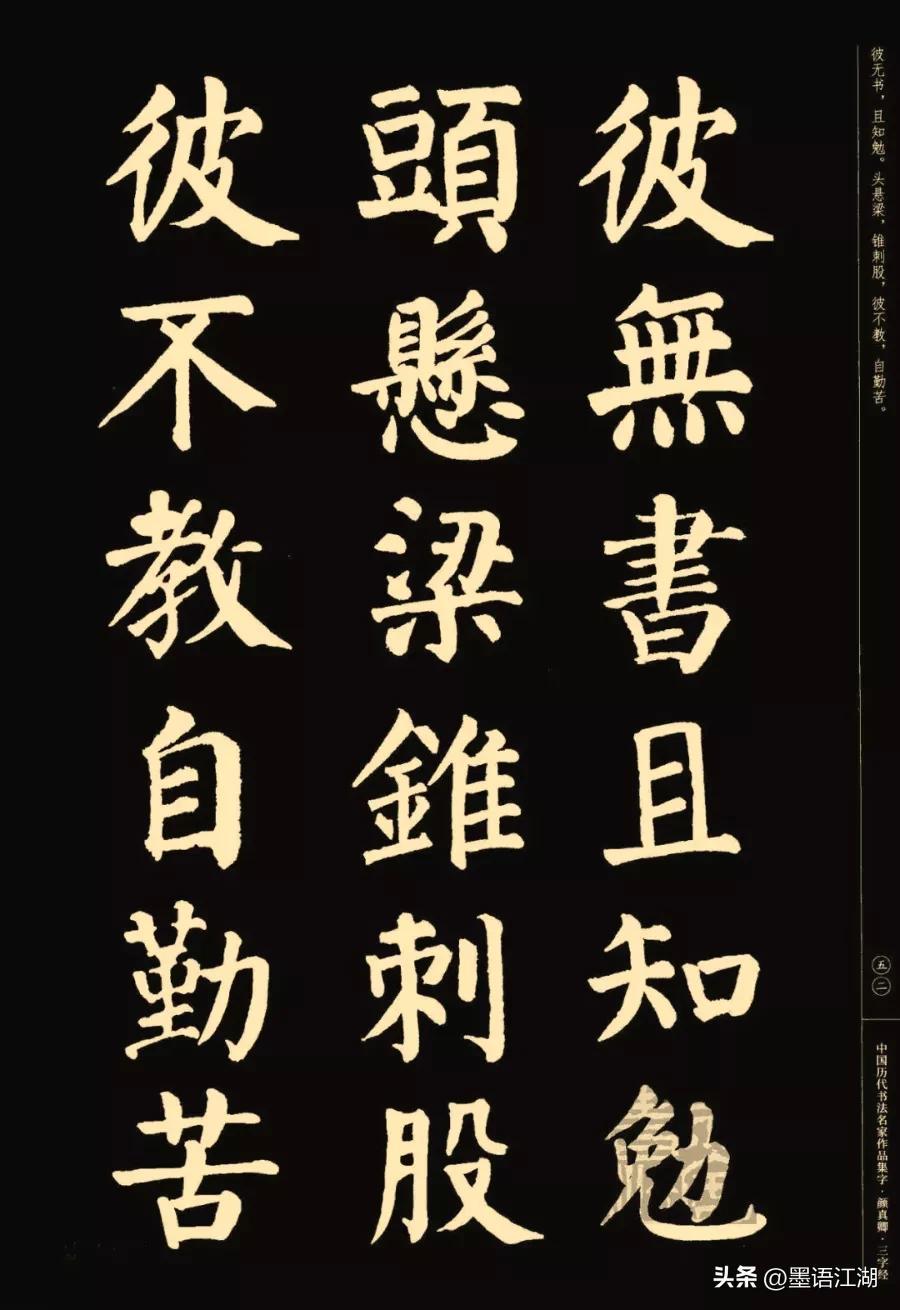 彼無書且知勉
頭懸梁錐刺股
彼不教自勤苦
彼无书，且知勉。头悬梁，锥刺股，彼不教，自勤苦。
五二
中国历代书法名家作品集字·颜真卿·三字经
头条 @墨语江湖